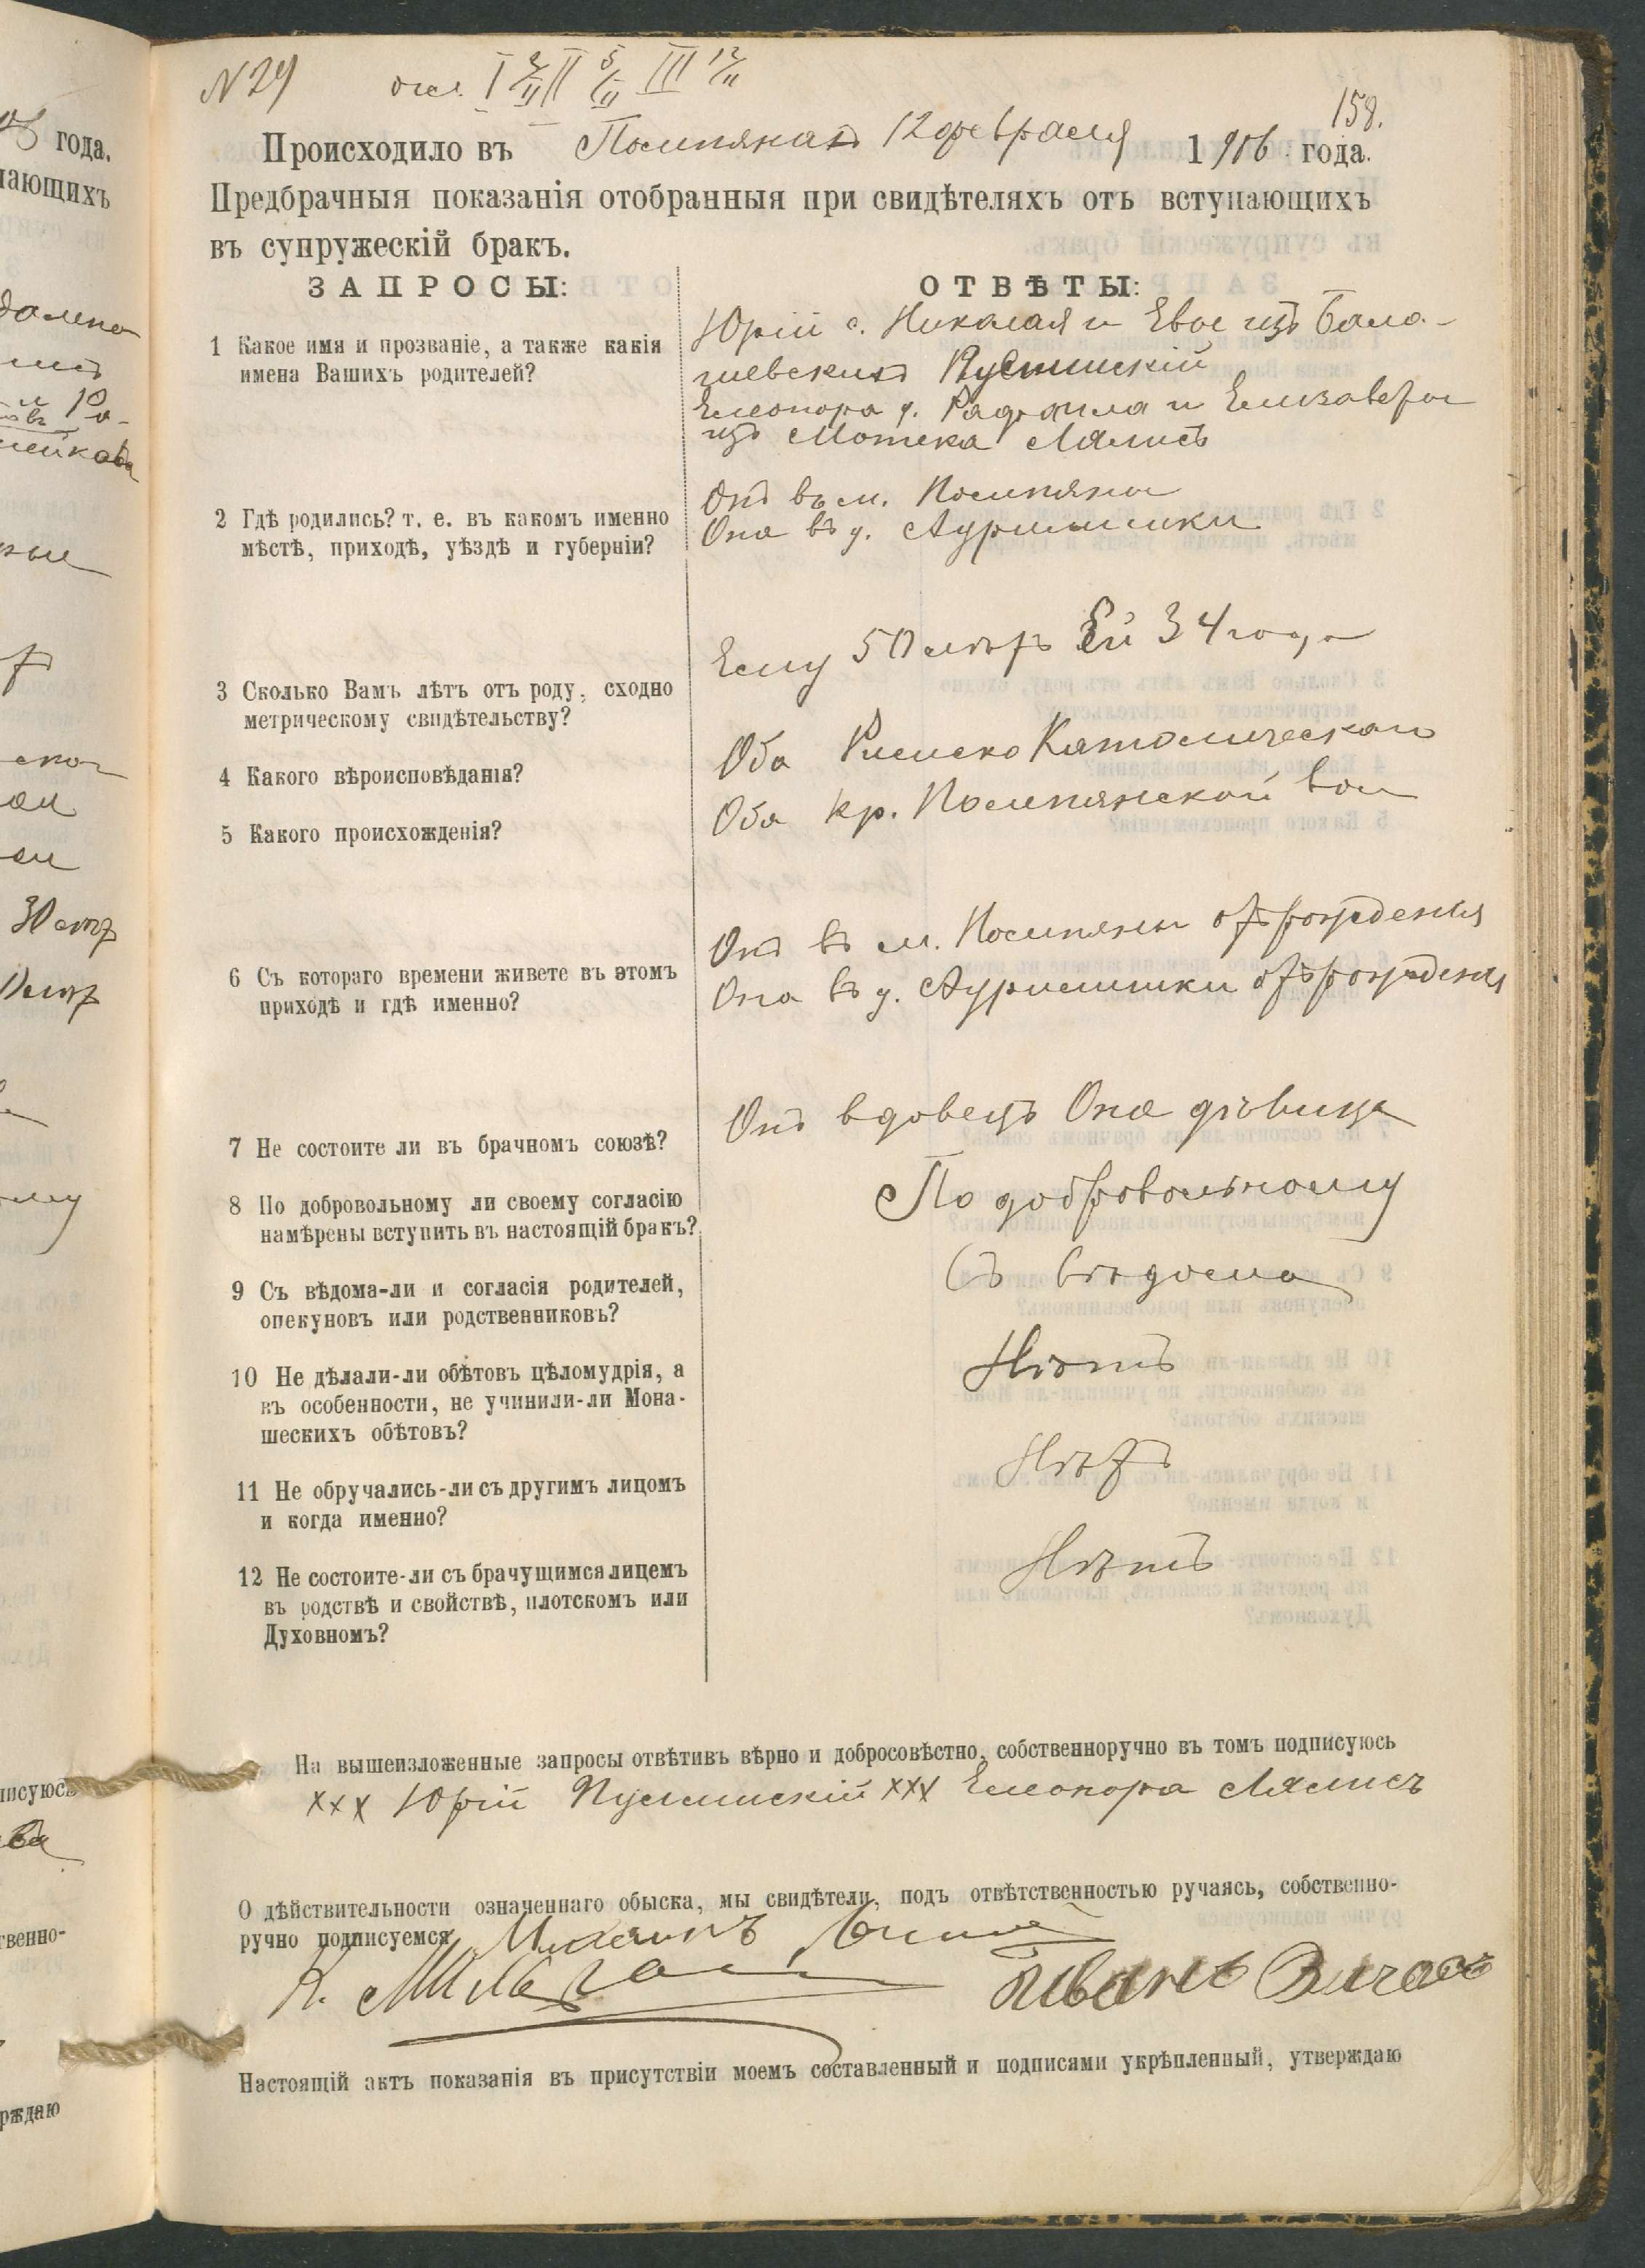 N 24 огл. I 2/II II 5/II III 12/II
158.
Происходило въ Помпянахъ 12 февраля 1906 года.
Предбрачныя показанія отобранныя при свидѣтеляхъ отъ вступающихъ
въ супружескій бракъ.
ЗАПРОСЫ:
ОТВѢТЫ:
1 Какое имя и прозваніе, а также какія
имена Вашихъ родителей?
Юрій с. Николая и Евы изъ Бала-
шевскихъ
Елеонора д. Рафаила и Елизаветы
изъ Мотека Лялисъ
2 Гдѣ родились? т. е. въ какомъ именно
мѣстѣ, приходѣ, уѣздѣ и губерніи?
Онъ въ м. Помпяны
Она въ д. Ауримишки
3 Сколько Вамъ лѣтъ отъ роду, сходно
метрическому свидѣтельству?
Ему 50 лѣтъ Ей 34 года
4 Какого вѣроисповѣданія?
Оба Римско Католическаго
5 Какого происхожденія?
Оба кр. Помпянской вол
6 Съ котораго времени живете въ этомъ
приходѣ и гдѣ именно?
Онъ въ м. Помпяны отъ рожденія
Она въ д. Ауримишки отъ рожденія
7 Не состоите ли въ брачномъ союзѣ?
Онъ вдовецъ Она дѣвица
8 По добровольному ли своему согласію
намѣрены вступить въ настоящій бракъ?
По добровольному
9 Съ вѣдома-ли и согласія родителей,
опекуновъ или родственниковъ?
Съ вѣдома
10 Не дѣлали-ли обѣтовъ цѣломудрія, а
въ особенности, не учинили-ли Мона-
шескихъ обѣтовъ?
Нѣтъ
11 Не обручались-ли съ другимъ лицомъ
и когда именно?
Нѣтъ
12 Не состоите-ли съ брачущимся лицемъ
въ родствѣ и свойствѣ, плотскомъ или
Духовномъ?
Нѣтъ
На вышеизложенные запросы отвѣтивъ вѣрно и добросовѣстно, собственноручно въ томъ подписуюсь
xxx Юрій xxx Елеонора Лялисъ
О дѣйствительности означеннаго обыска, мы свидѣтели, подъ отвѣтственностью ручаясь, собственно-
ручно подписуемся
К.
Иванъ
Настоящій актъ показанія въ присутствіи моемъ составленный и подписами укрѣпленный, утверждаю